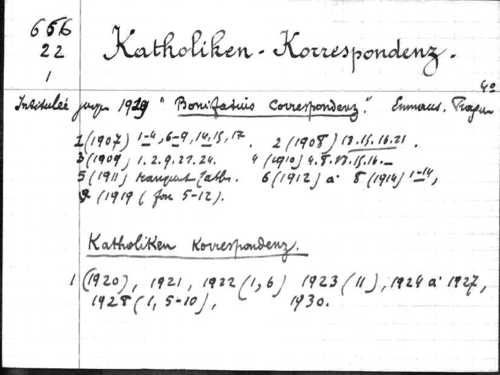 656
22
1
Katholiken-Korrespondenz.
4°
Intitulée jusqu 1919 "Bonifatius Correspondenz". Emmaus. Prague
1 (1907) 1-4, 6-9, 14, 15, 17. 2 (1908) 13.15.16.21.
3 (1909) 1.2.9.22.24. 4 (1910) 4.8.13.15.16.-
5 (1911) 6 (1912) à 8 (1914) 1-14,
(1919 ( 5-12).
Katholiken Korrespondenz.
1 (1920), 1921, 1922 (1,6) 1923 (11), 1924 à 1927,
1928 (1, 5-10), 1930.